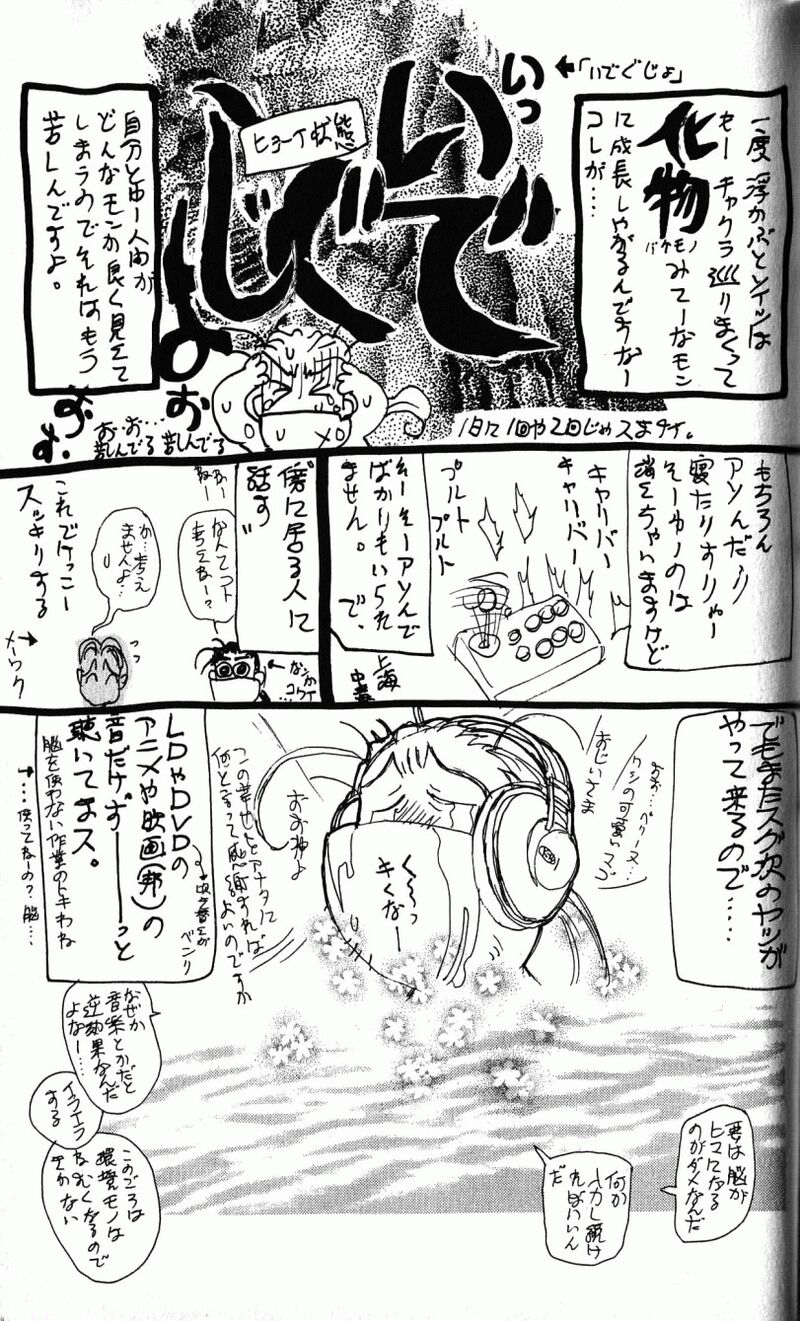 一度浮かぶとソイツは
もーチャクラ巡りまくって
化物
バケモノ
みてーなモン
に成長しやがるんですなー
コレが…
←「いでぐじょ」
いっ
いでで
じぐじょ
ヒョーイ状態
お
お
よ
自分とゆー人間が
どんなモンか良く見えて
しまうのでそれはもう
苦しんですよ。
お…お…
苦しんでる 苦しんでる
1日に1回や2回じゃスまナイ。
もちろん
アソんだり
寝たりすりゃー
そーゆーのは
消えちゃいますけど
キャリバー
キャリバー
プルト
プルト
上海
中毒
そーそーアソんで
ばかりもいられ
ません。で、
傍に居る人に
話す
なんてコト
考えねー?
←なンか
コワイ
か…考え
ませんよ…
これでけっこー
スッキリする
メーワク→
でもまたスグ次のヤツが
やって来るので……
おお…ペリーヌ…
ワシの可愛いマゴ
おじいさま
くぅーっ
キくなー
おお神よ
この幸せをアナタに
何と言って感謝すれば
よいのですか
LDやDVDの
アニメや映画(邦)の
音だけずーーーっと
聴いてまス。
→吹き替えが
ベンリ
脳を使わない作業のトキわね
→…使ってねーの?脳…
なぜか
音楽とかだと
逆効果なんだ
よなー…
イライラ
する
このごろは
環境モノは
ねむくなるので
きかない
要は脳が
ヒマになる
のがダメなんだ
何か
入力し続け
ればいいん
だ